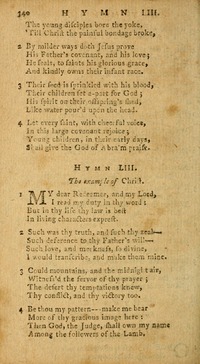 340 HYMN LIII.
The young disciples bore the yoke,
'Till Christ the painful bondage broke.
2 By milder ways doth Jesus prove
His Father's covenant, and his love;
He seals, to saints his glorious grace,
And kindly owns their infant race.
3 Their seed is sprinkled with his blood,
Their children set apart for God;
His spirit on their offspring's shed,
Like water pour'd upon the head.
4 Let every saint, with cheerful voice,
In this large covenant rejoice;
Young children, in their early days,
Shall give the God of Abra'm praise.
HYMN LIII.
The example of Christ.
1 MY dear Redeemer, and my Lord,
I read my duty in thy word;
But in thy life thy law is
In living characters exprest.
2 Such was thy truth, and such thy zeal—
Such deference to thy Father's will—
Such love, and meekness, so divine,
I would transcribe, and make them mine.
3 Cold mountains, and the midnight air,
Witness'd the fervor of thy prayer;
The desert thy temptations knew,
Thy conflict, and thy victory too.
4 Be thou my pattern—make me bear
More of thy gracious image here;
Then God, the Judge, shall own my name
Among the followers of the Lamb.